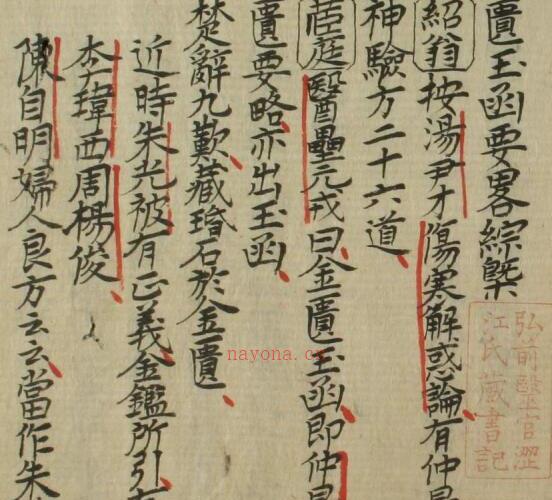 匱玉函要畧綜槩
紹翁按湯尹才傷寒解惑論有仲景
神驗方二十六道
茝庭醫壘元戎曰金匱玉函即仲景
匱要略亦出玉函
楚辭九歎藏瑉石於金匱
近時朱光被有正義金鑑所引
李瑋西周楊俊
陳自明婦人良方云云當作朱
弘前醫官澀
江氏藏書記
nayona.cn